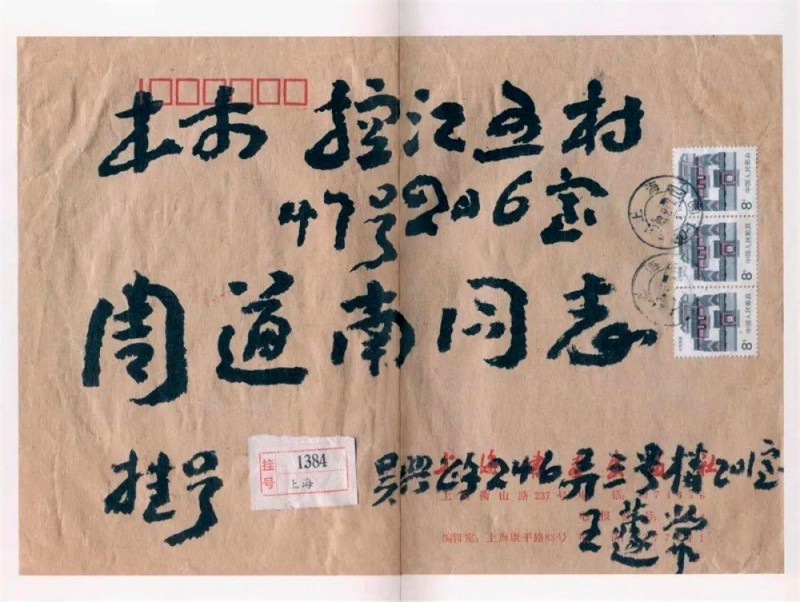 本市 控江五村
47号206室
周道南同志
挂号
挂号 1384
上海
吴兴路246弄三号楼201室
王蘧常
上海 衡山路237号
编辑室:上海康平路83号
中国人民邮政 8分
中国人民邮政 8分
中国人民邮政 8分
上海
上海